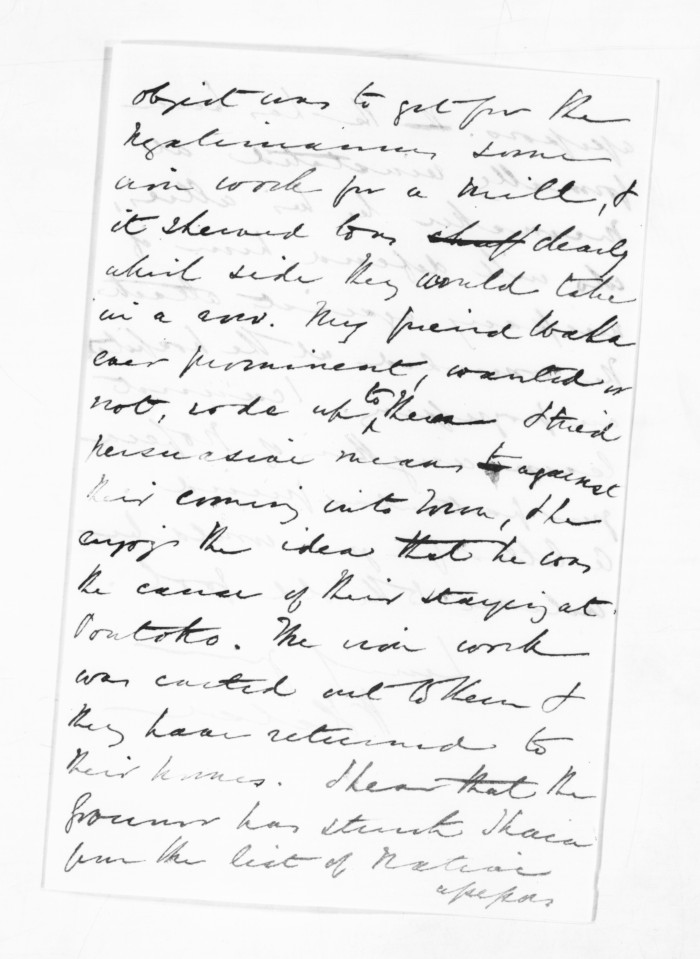 object was to get for the
Ngatimaniu some
iron work for a mill, &
it shewed to us clearly
which side they would take
in a row. My friend Waka
ever prominent, wanted or
not, rode up to them & tried
persuasive means against
their coming into Town, & he
enjoys the idea that he was
the cause of their staying at
Poutoko. The iron work
was carted out to them &
they have returned to
their homes. I hear that the
Governor has struck Ihaia
from the list of Native
assessors